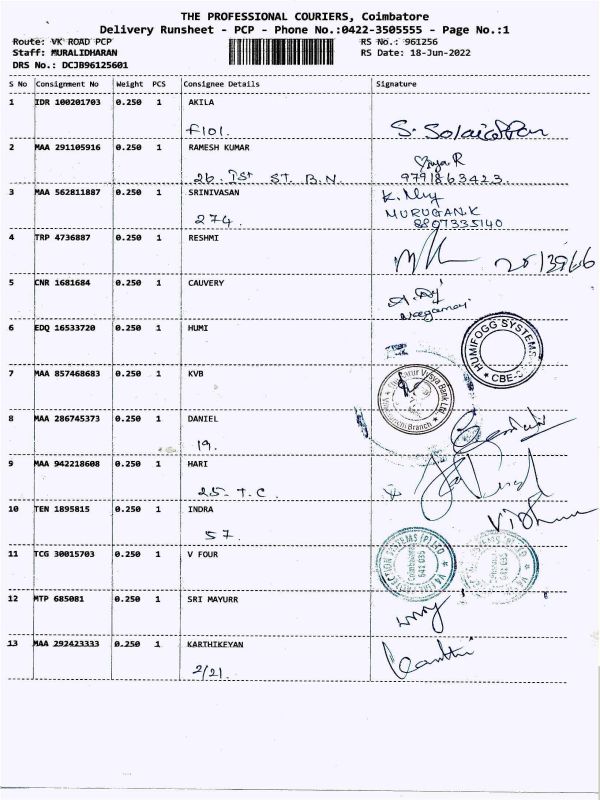 THE PROFESSIONAL COURIERS, Coimbatore
Delivery Runsheet - PCP - Phone No.:0422-3505555 - Page No.:1
Route: VK ROAD PCP RS No.: 961256
Staff: MURALIDHARAN RS Date: 18-Jun-2022
DRS No.: DCJB96125601
S No Consignment No Weight PCS Consignee Details Signature
1 IDR 100201703 0.250 1 AKILA
F101.
2 MAA 291105916 0.250 1 RAMESH KUMAR
26. Ist ST. B.N. 9791863423.
3 MAA 562811887 0.250 1 SRINIVASAN
MURUGAN.K
274. 8807335140
4 TRP 4736887 0.250 1 RESHMI
5 CNR 1681684 0.250 1 CAUVERY
6 EDQ 16533720 0.250 1 HUMI
HUMIFOGG SYSTEMS
7 MAA 857468683 0.250 1 KVB
Vysya Bank Ltd
Branch
8 MAA 286745373 0.250 1 DANIEL
19.
9 MAA 942218608 0.250 1 HARI
25. T.C.
10 TEN 1895815 0.250 1 INDRA
57
11 TCG 30015703 0.250 1 V FOUR
12 MTP 685081 0.250 1 SRI MAYURR
13 MAA 292423333 0.250 1 KARTHIKEYAN
2/21.